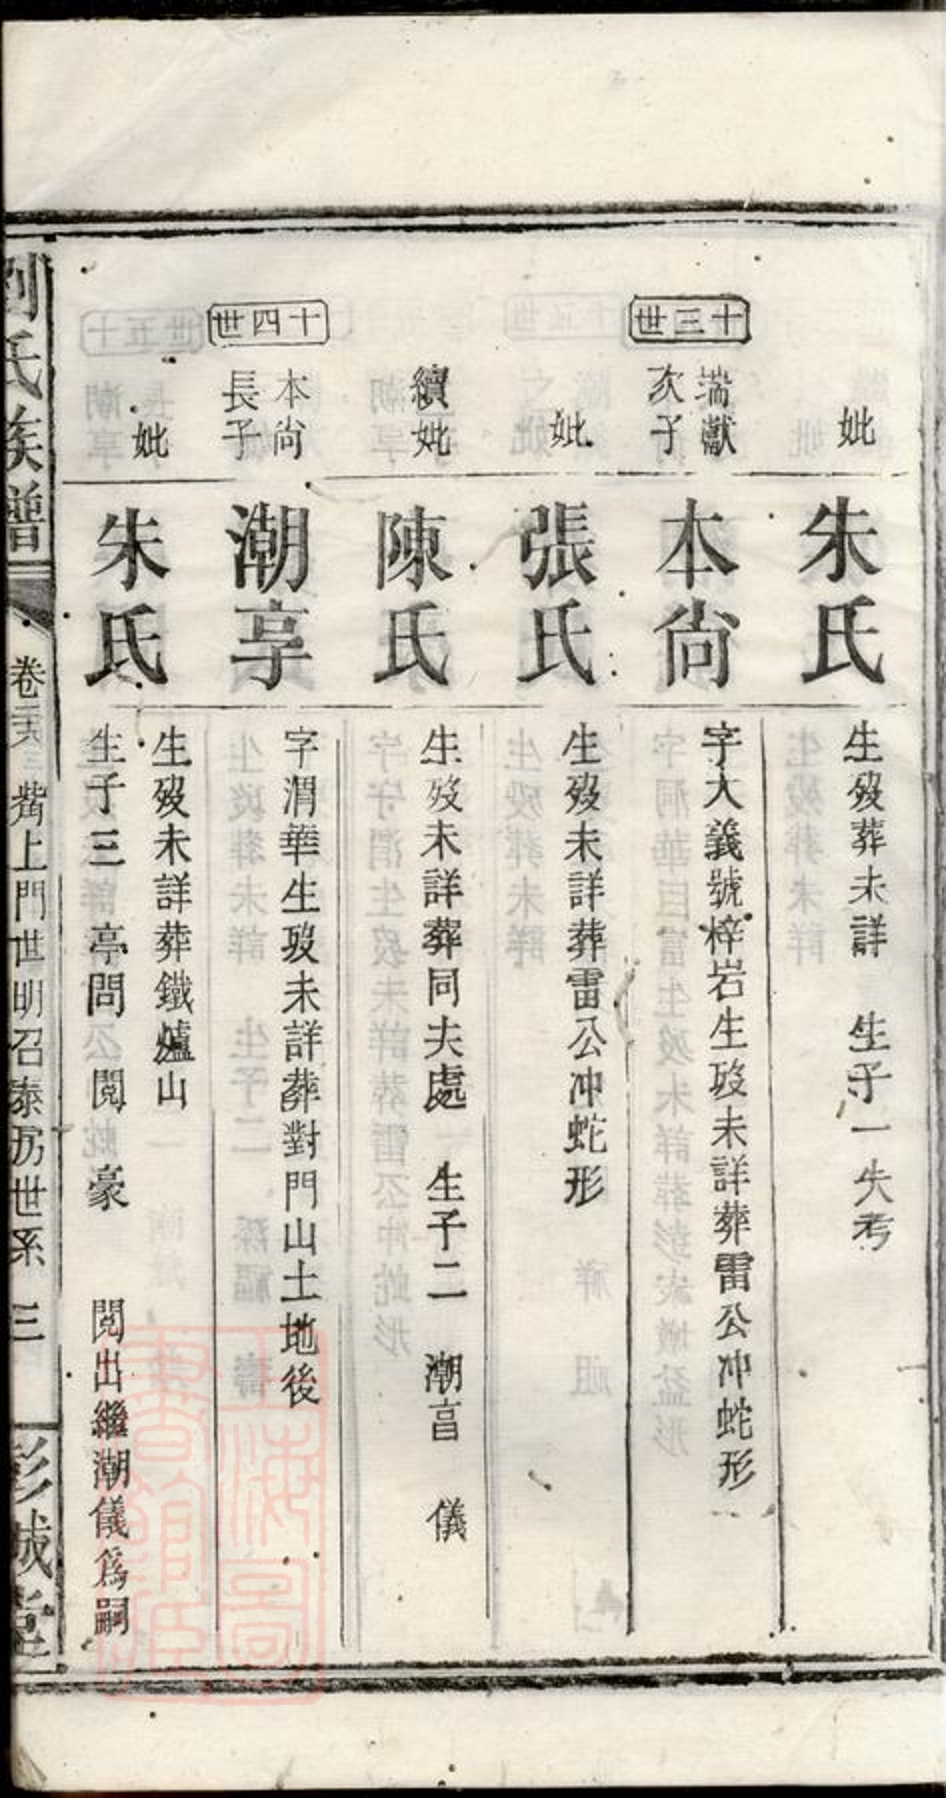 妣
朱氏
生歿葬未詳 生子一失考
十三世
端獻
次子
本尚
字大義號梓岩生歿未詳葬雷公冲蛇形
妣
張氏
生歿未詳葬雷公冲蛇形
續妣
陳氏
生歿未詳葬同夫處 生子二 潮亯 儀
十四世
本尚
長子
潮享
字渭華生歿未詳葬對門山土地後
妣
朱氏
生歿未詳葬鐵爐山
生子三 亭問 閲 豪 閲出繼潮儀爲嗣
劉氏族譜
上門世明召泰房世系 三
彭城堂
上海圖書館藏